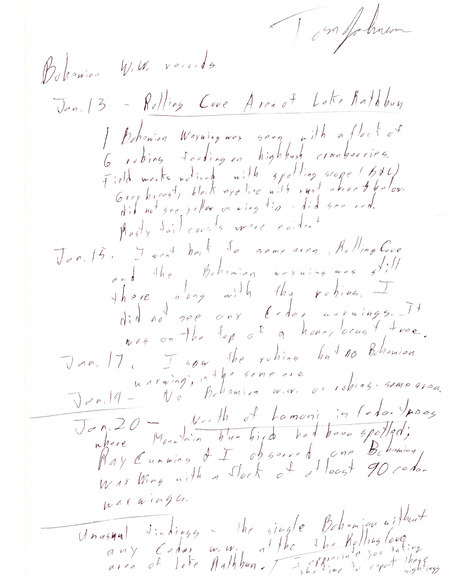 Tom Johnson
Bohemian W.W. records
Jan. 13 - Rolling Cove Area of Lake Rathbun
1 Bohemian Waxwing was seen with a flock of
6 robins feeding on highbush cranberries.
Field marks noticed with spotting scope
Grey breast, black eye line with rust above & below.
did not see yellow on wing tip - did see red.
Rusty tail coverts were evident
Jan. 15. I went back to same area, Rolling Cove
and the Bohemian waxwing was still
there along with the robins. I
did not see any Cedar waxwings. It
was on the top of a honey locust tree.
Jan. 17. I saw the robins but no Bohemian
waxwing, in the same area
Jan. 19 - No Bohemian w.w. or robins - same area.
Jan. 20 - North of Lamoni in Cedar
where Mountain bluebird had been spotted;
Ray Cummins & I observed one Bohemian
waxwing with a flock of at least 90 cedar
waxwings.
Unusual findings - the single Bohemian without
any Cedar w.w. at the the Rolling Cove
area of Lake Rathbun. I appreciate you taking
the time to report these
sightings